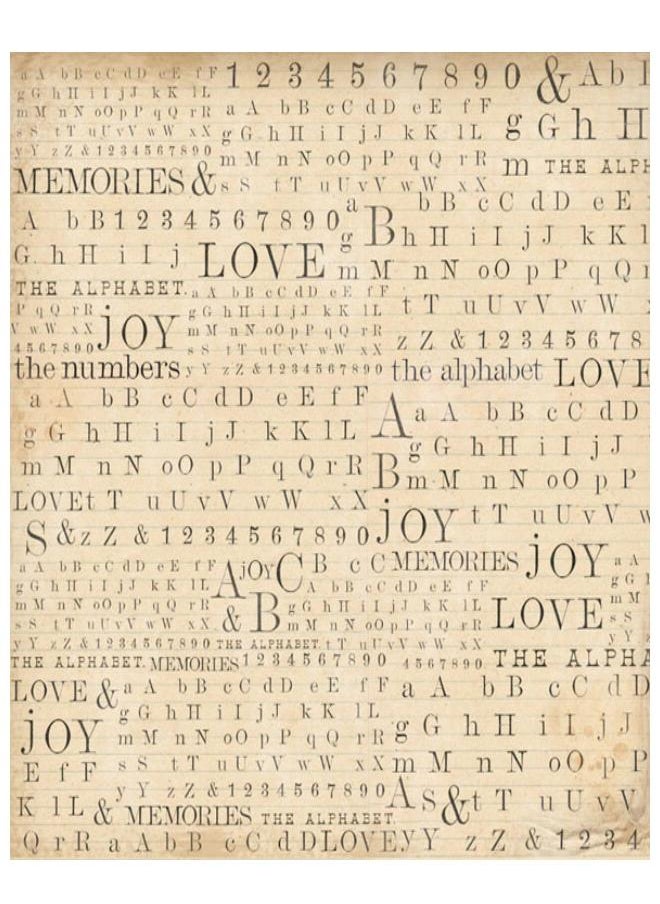 a A bB cC dD eE fF 1 2 3 4 5 6 7 8 9 0 & Ab
g G h H i I j J kK lL a A b B c C d D e E f F
m M n N oO p P q Q r R g G h H i I j J k K lL g G h H
s S tT uUvV wW xX m M n N oO p P q Q r R m THE ALPH
y Y zZ & 1 2 3 4 5 6 7 8 9 0
MEMORIES & s S t T uUvV wW xX
A b B 1 2 3 4 5 6 7 8 9 0 a B b B c C d D e E
G h H i I j LOVE g h H i I j J k K l
THE ALPHABET. a A bB cC dD eE fF m M n N oO p P q Q r
P q Q r R g G h H i I j J kK lL t T uUvV wW
V wW xX JOY m M n N oO p P q Q r R
4 5 6 7 8 9 0 s S tT uUvV wW xX z Z & 1 2 3 4 5 6 7 8
the numbers y Y zZ & 1 2 3 4 5 6 7 8 9 0 the alphabet LOVE
a A b B c C d D e E f F A a A b B c C d D
g G h H i I j J k K lL g G h H i I j J
m M n N oO p P q Q r R B m M n N oO p P
LOVE t T uUvV wW xX JOY t T uUvV w
S & z Z & 1 2 3 4 5 6 7 8 9 0
a A bB cC dD eE fF A JOY C B c C MEMORIES JOY a A
g G h H i I j J kK lL A b B c C d D e E f F g G
m M n N oO p P q Q r R & B g G h H i I j J kK lL LOVE m M
s S tT uUvV wW xX m M n N oO p P q Q r R s S
y Y zZ & 1 2 3 4 5 6 7 8 9 0 THE ALPHABET. tT uUvV wW xX y Y
THE ALPHABET. MEMORIES 1 2 3 4 5 6 7 8 9 0 4 5 6 7 8 9 0 THE ALPHA
LOVE & a A b B c C d D e E f F a A b B c C d D
JOY g G h H i I j J k K lL g G h H i I j J
m M n N oO p P q Q r R
E f F s S tT uUvV wW xX m M n N oO p P
y Y zZ & 1 2 3 4 5 6 7 8 9 0 A S & t T uUvV
K lL & MEMORIES THE ALPHABET.
Q r R a A b B c C d D LOVE y Y z Z & 1 2 3 4